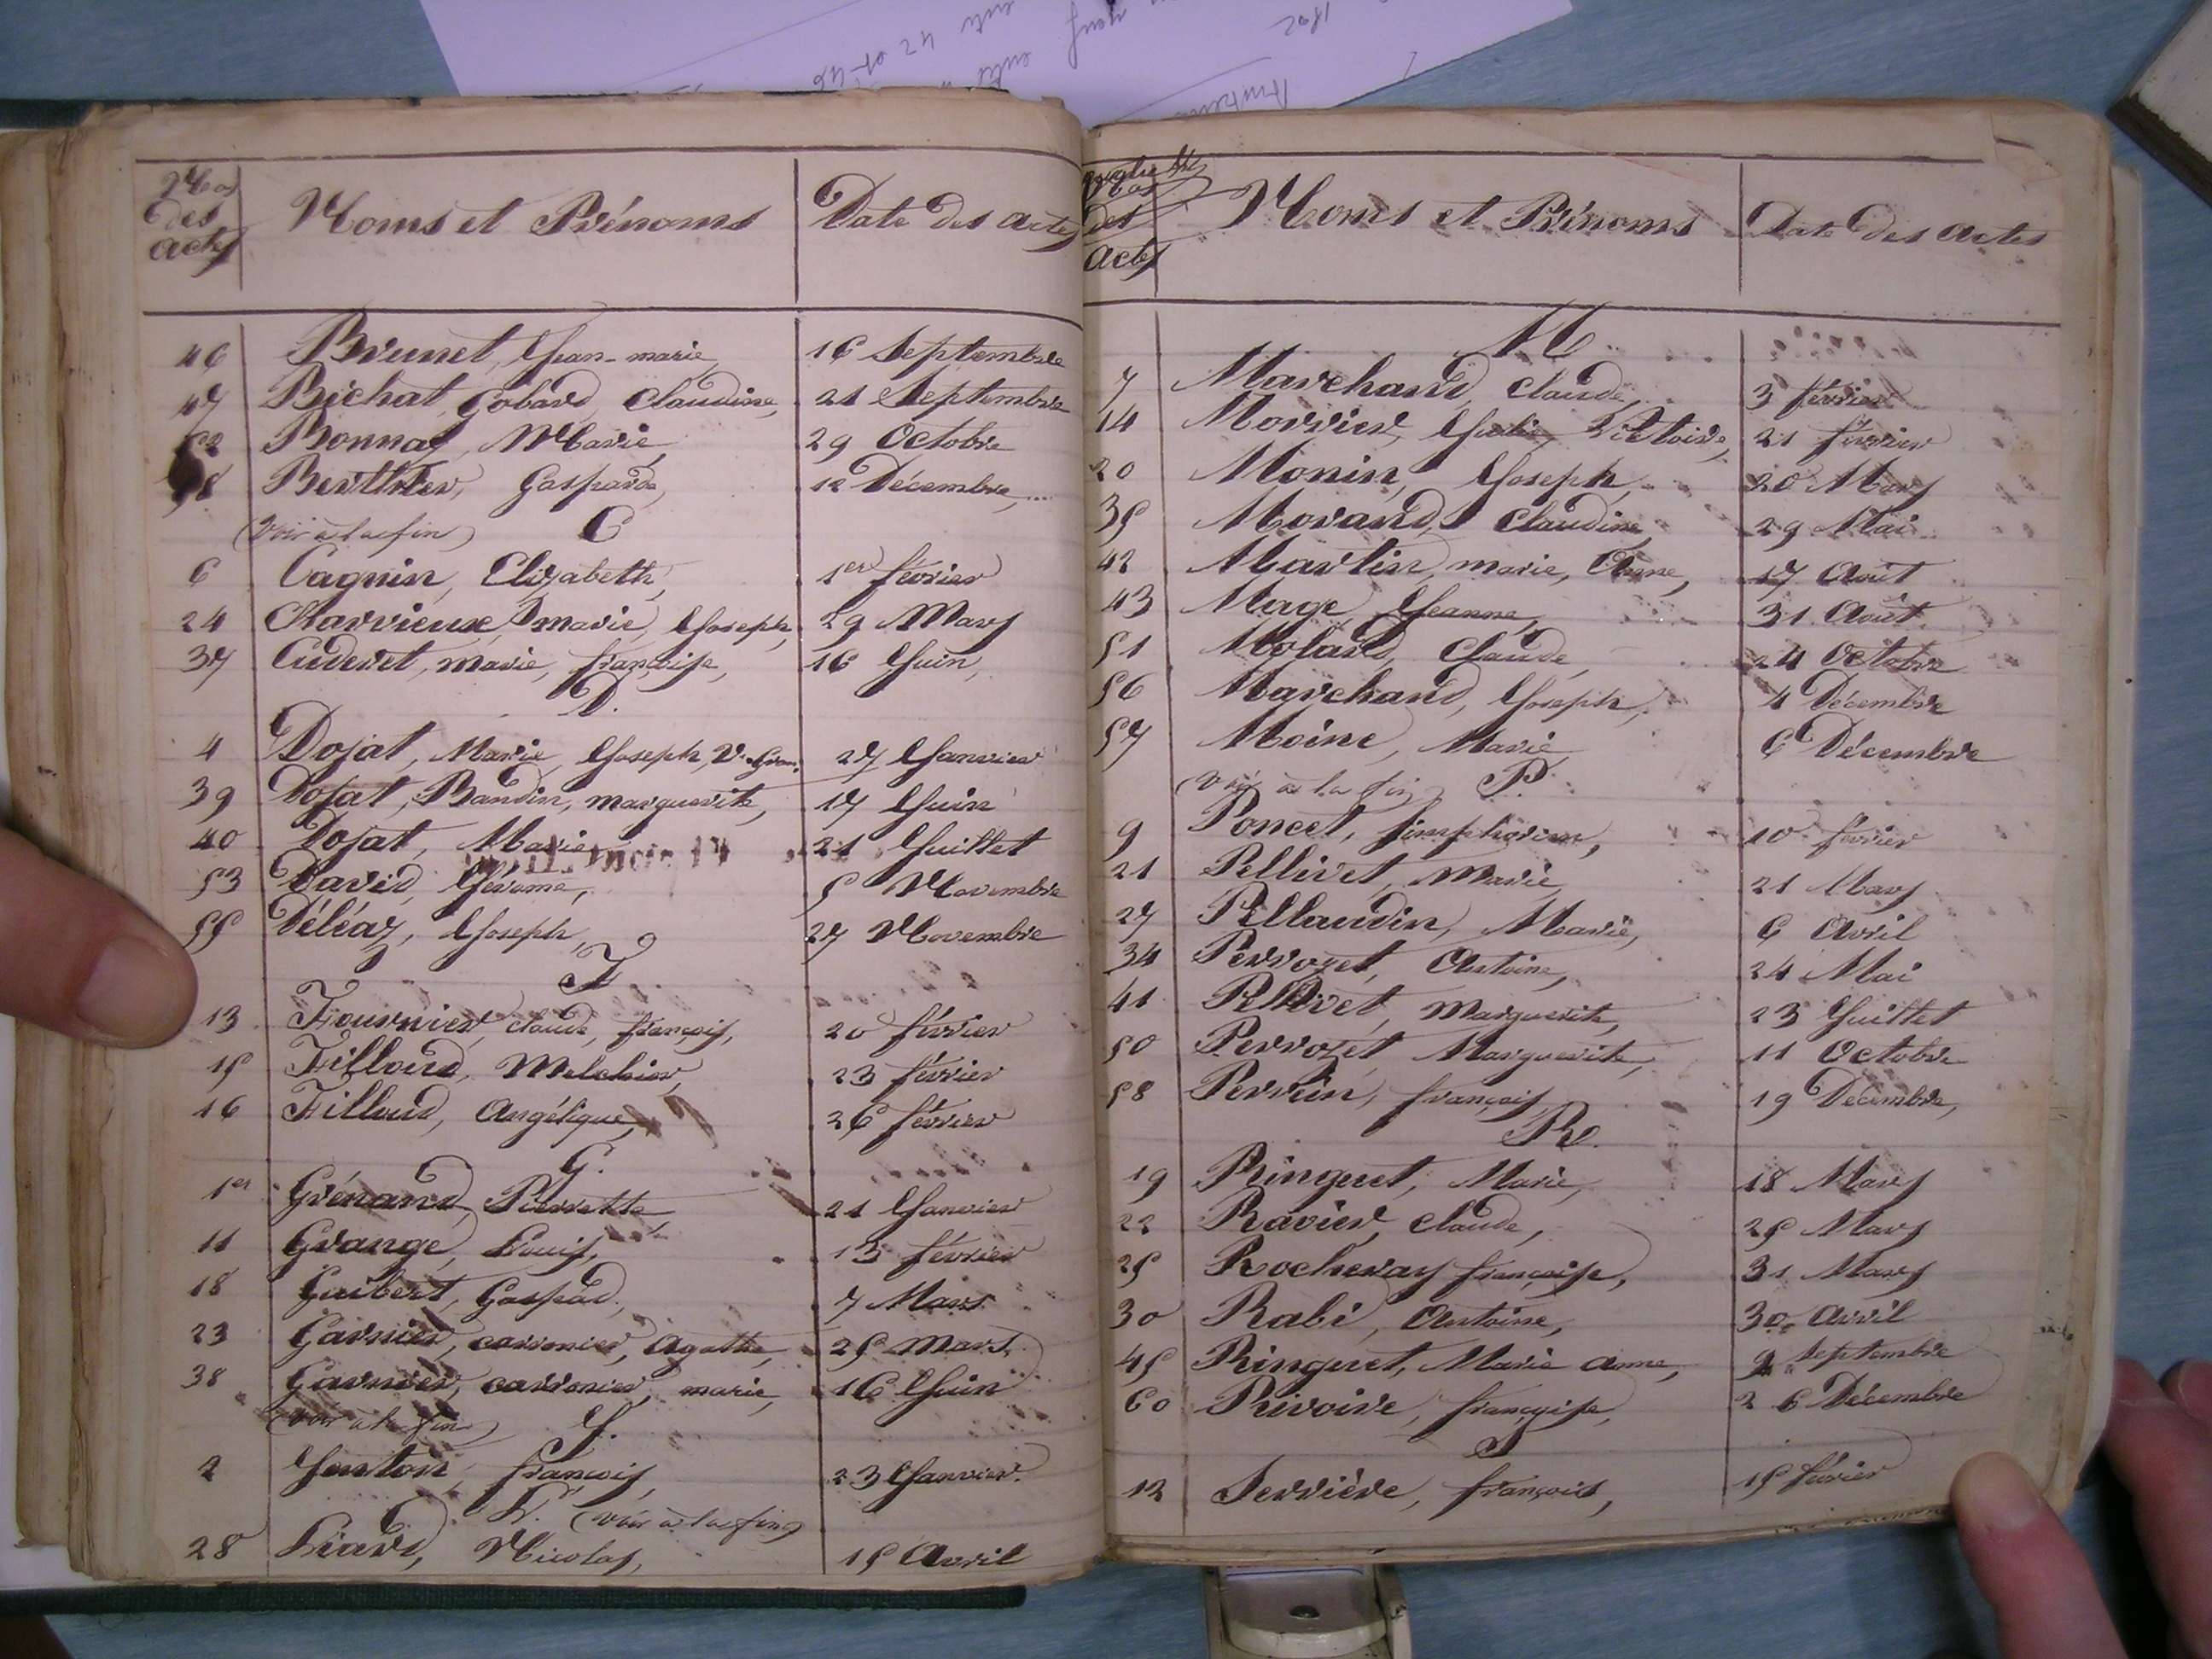 Nos des actes
Noms et Prénoms
Date des actes
46 Brunet, Jean-marie, 16 Septembre
47 Bichat Gobard Claudine, 21 Septembre
52 Bonnaf, Marie, 29 Octobre
58 Berthier, Gasparde, 12 Décembre,
(Voir à la fin) C
6 Cagnin, Elizabeth, 1er février
24 Charvieux, marie, Joseph, 29 Mars
37 Cuderet, marie, françoise, 16 Juin,
D.
4 Dojat, Marie, Joseph, Ve 27 Janvier
39 Dojat, Bandin, marguerite, 17 Juin
40 Dojat, Marie 21 Juillet
53 David, Jérome, 5 Novembre
55 Déléaz, Joseph, 27 Novembre
F
13 Fournier, claude, françois, 20 février
15 Filloud, Melchior, 23 février
16 Filloud, Angélique, 26 février
G.
1er Grénard, Pierrette, 21 Janvier
11 Grange, Louis, 13 février
18 Guibert, Gaspard, 7 Mars
23 Garnier, carronier, Agathe, 25 Mars
38 Garnier, carronier, marie, 16 Juin
(voir à la fin) J.
2 Jenton, françois, 23 Janvier.
L. (voir à la fin)
28 Liard, Nicolas, 15 Avril
Nos des Actes
Noms et Prénoms
Date des actes
M.
7 Marchand, Claude, 3 février
14 Morrier, Julie, Victoire, 21 février
20 Monin, Joseph, 20 Mars
35 Morand, Claudine, 29 Mai
42 Martin, marie, Anne, 17 Août
43 Mage, Jeanne, 31 Août
51 Molard, Claude, 24 Octobre
56 Marchand, Joseph, 4 Décembre
57 Moine, Marie 6 Décembre
(voir à la fin) P.
9 Poncet, Simphorien, 10 février
21 Pellivet, Marie, 21 Mars
27 Pellaudin, Marie, 6 Avril
34 Perrozet, Antoine, 24 Mai
41 Pellivet, Marguerite, 23 Juillet
50 Perrozet, Marguerite, 11 Octobre
58 Perrin, françois, 19 Décembre,
R.
19 Ringuet, Marie, 18 Mars
22 Ravier, Claude, 25 Mars
25 Rocheray françoise, 31 Mars
30 Rabi, Antoine, 30 Avril
45 Ringuet, Marie Anne, 9 Septembre
60 Rivoire, françoise, 26 Décembre
S
12 Serrière, françois, 15 février